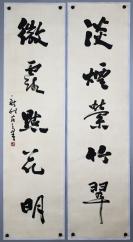 淡煙縈竹翠
微露點花明